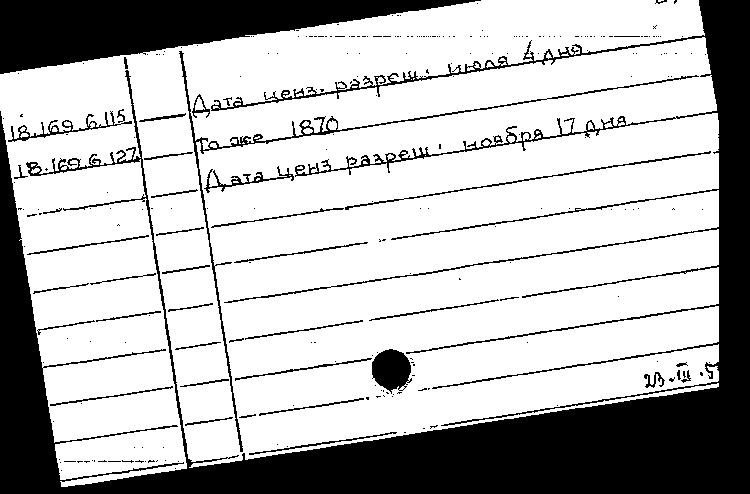 Дата ценз. разреш.: июля 4 дня.
18.169.6.115 То же, 1870
18.169.6.127 Дата ценз. разреш.: ноября 17 дня.
23.III.5